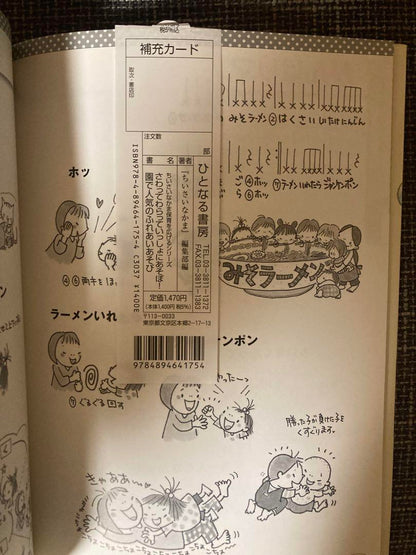 税5%込
補充カード
取次・書店印
注文数
部
書 名
著者
ちいさいなかま保育を広げるシリーズ
さわってわらっていっしょにあそぼ!
園で人気のふれあいあそび
『ちいさいなかま』編集部編
ひとなる書房
TEL.03-3811-1372
FAX.03-3811-1383
ISBN978-4-89464-175-4 C3037 ¥1400E
定価1,470円
(本体1,400円 税5%)
〒113-0033
東京都文京区本郷2-17-13
9784894641754
みそラーメン ②はくさい しいたけ にんじん
ホッ
ご ④ホッ ⑦ラーメンいれたら ジャンケンポン
ら ⑥ホッ
みそラーメン
④⑥両手を
ラーメンいれ
ケンポン
⑦ぐるぐる回す
やったー
勝った子が負けた子を
くすぐります。
きゃああ
こちょこちょこちょ